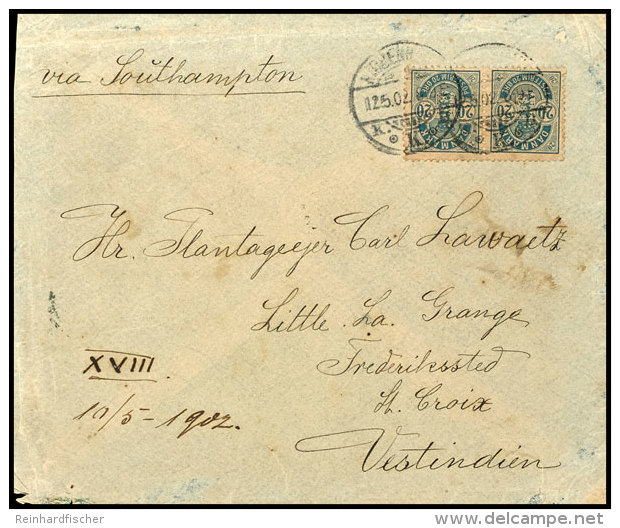 via Southampton
12.5.02
DANMARK
20 20
DANMARK
20 20
Hr. Plantageejer Carl Lawaetz
Little La Grange
Frederikssted
St. Croix
Vestindien
XVIII
10/5-1902.
Reinhardfischer
delcampe.net